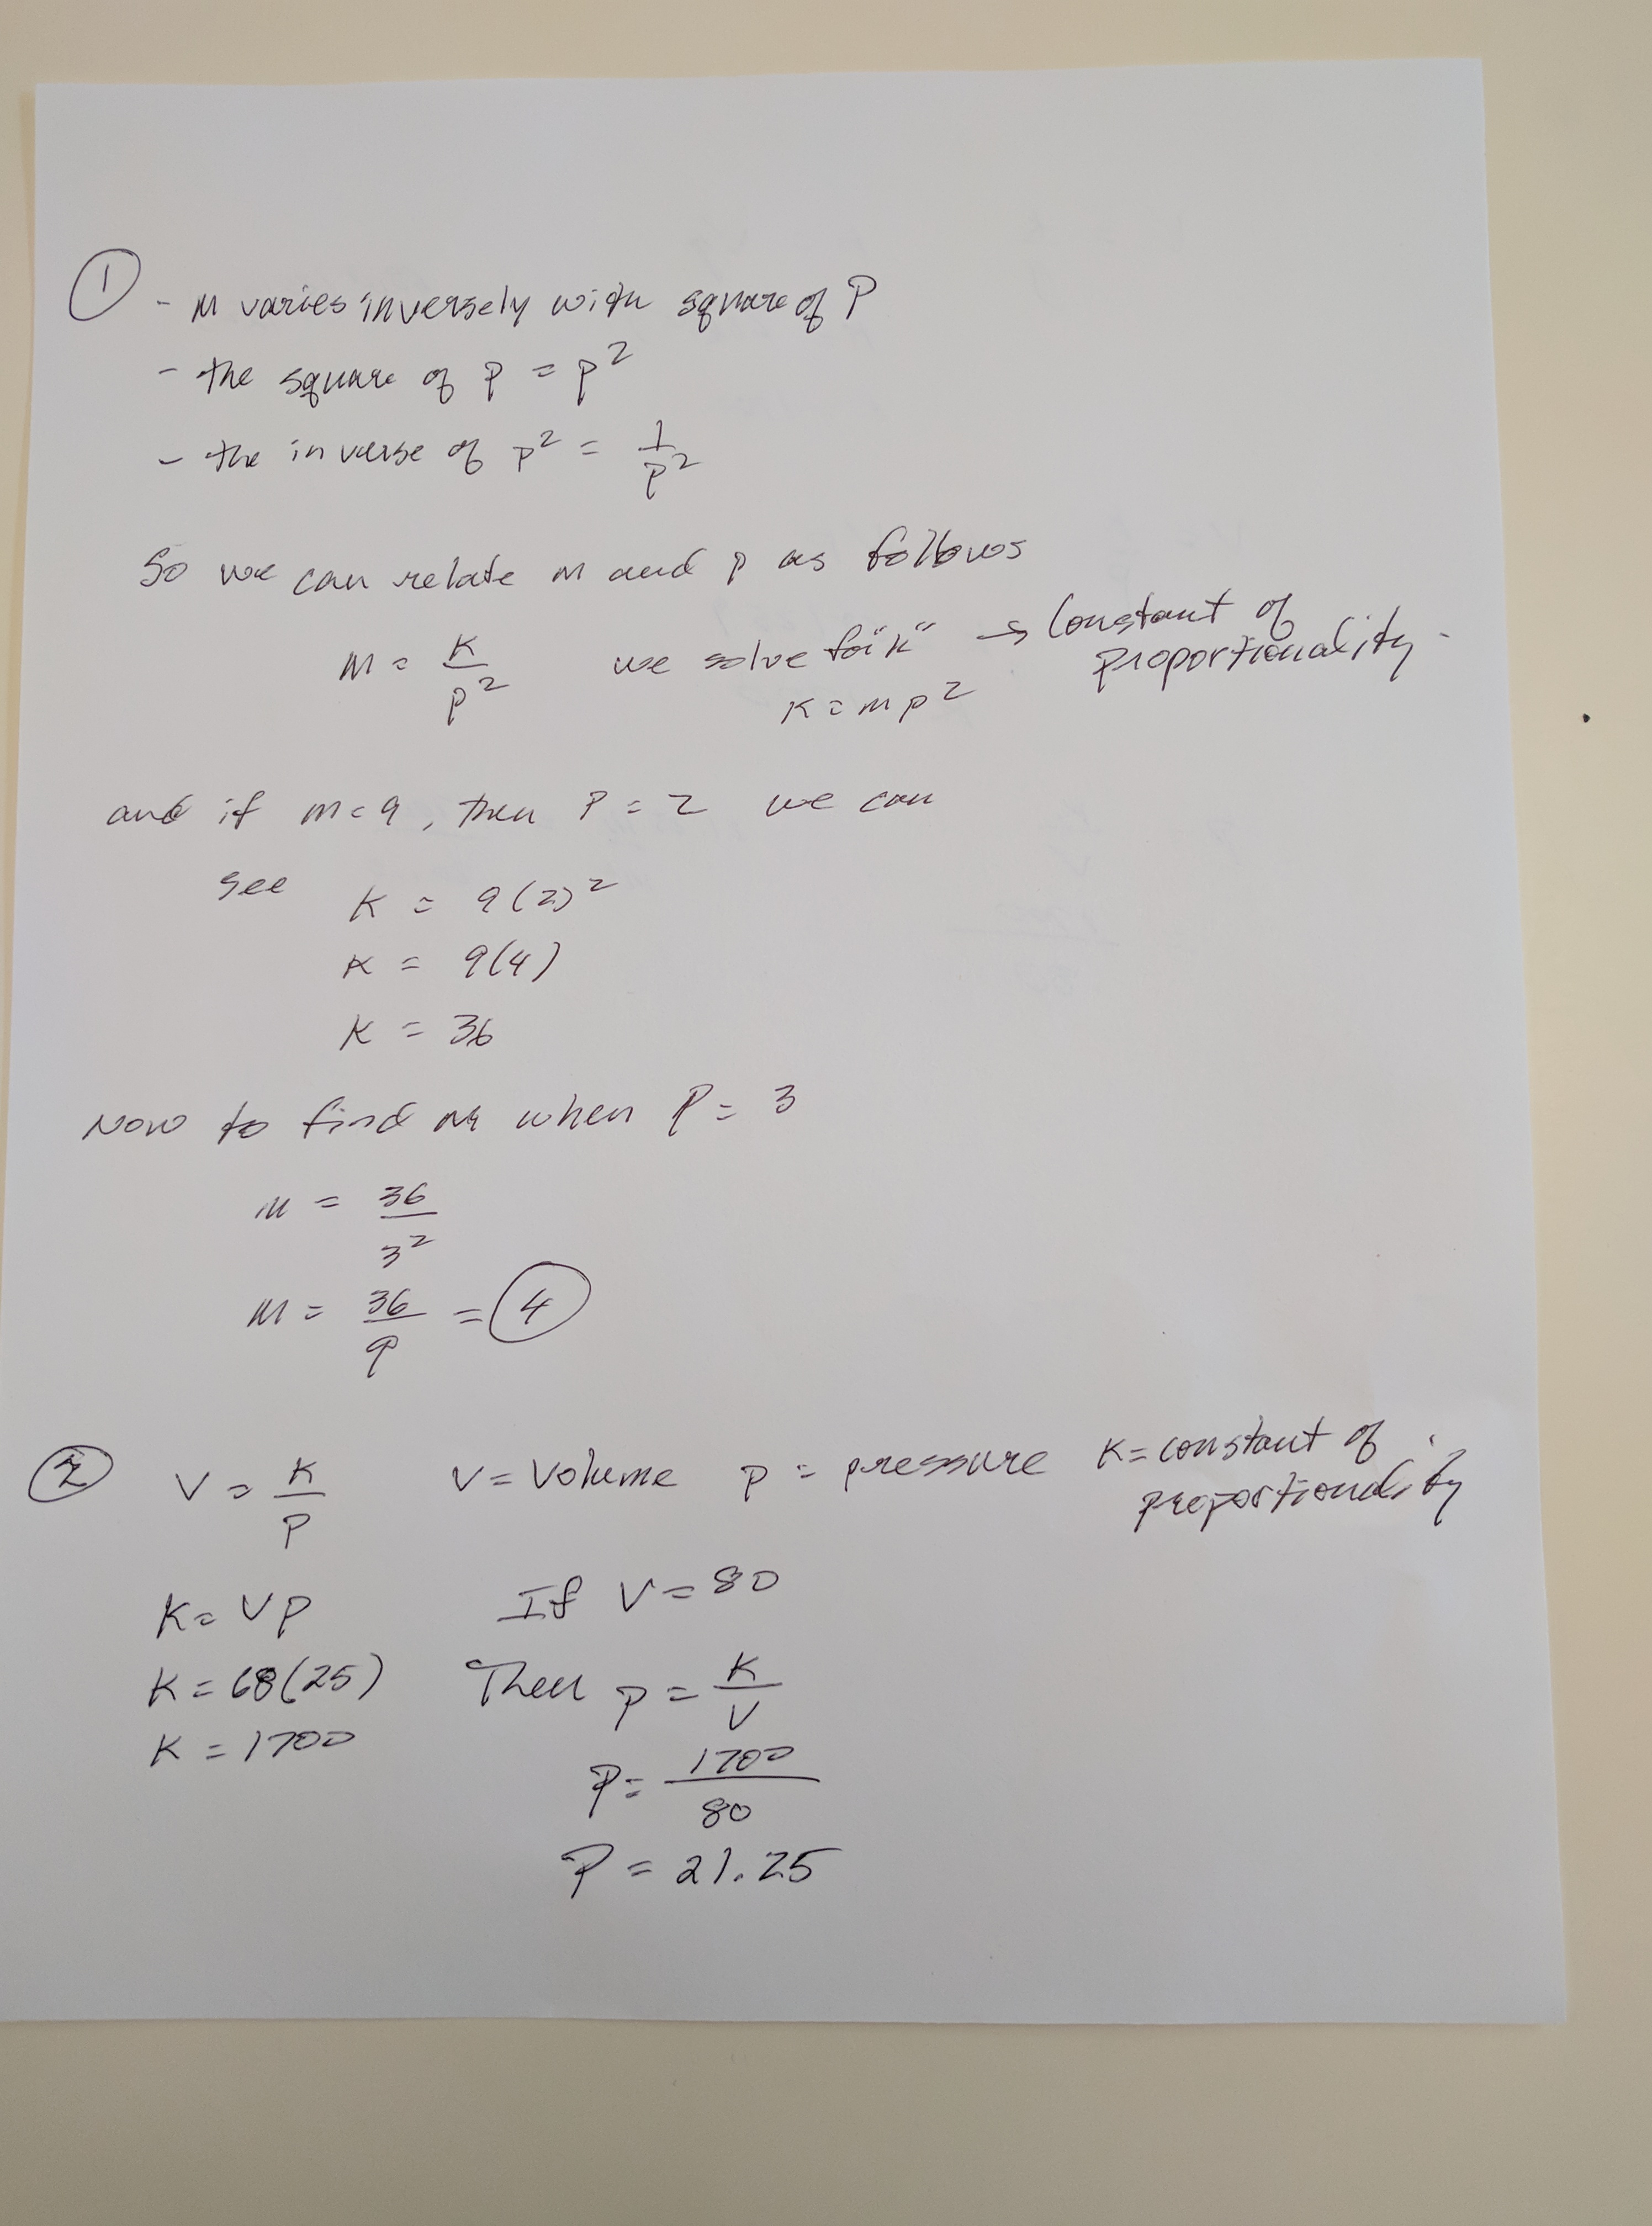 ① - m varies inversely with square of P
- the square of p = p²
- the inverse of p² = 1/p²
So we can relate m and p as follows
m = K/p² we solve for "k" → Constant of proportionality.
K = mp²
and if m = 9, then P = 2 we can
see K = 9(2)²
K = 9(4)
K = 36
Now to find m when P = 3
m = 36/3²
m = 36/9 = 4
② V = K/P V = Volume p = pressure K = constant of proportionality
K = Vp If V = 80
K = 68(25) Then p = K/V
K = 1700
P = 1700/80
P = 21.25